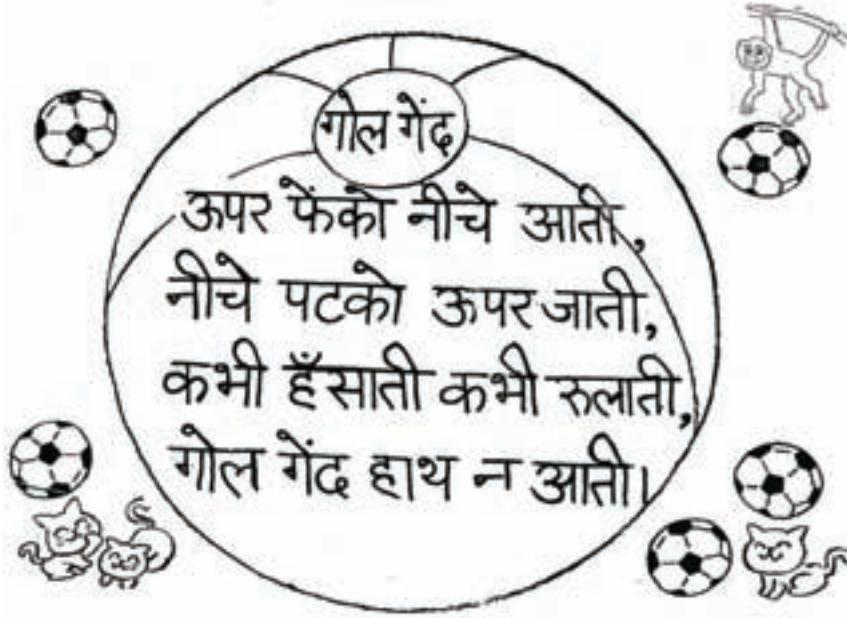 गोल गेंद
ऊपर फेंको नीचे आती,
नीचे पटको ऊपर जाती,
कभी हँसाती कभी रुलाती,
गोल गेंद हाथ न आती।